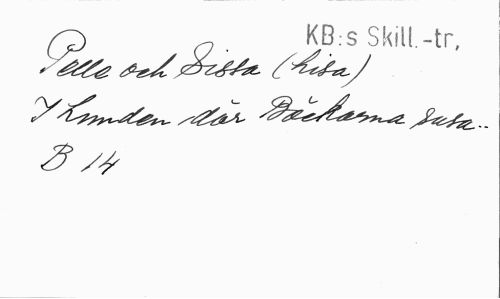 KB:s Skill.-tr.
Pelle och Sissa (Lisa)
I Lunden där Bäckarna susa..
B 14